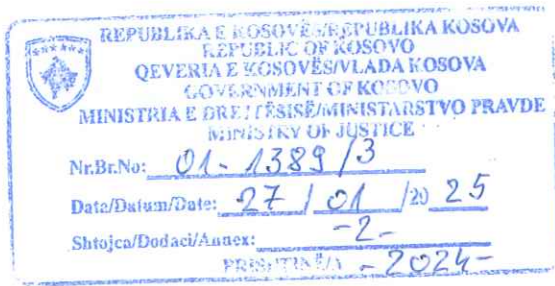 REPUBLIKA E KOSOVËS/REPUBLIKA KOSOVA
REPUBLIC OF KOSOVO
QEVERIA E KOSOVËS/VLADA KOSOVA
GOVERNMENT OF KOSOVO
MINISTRIA E DREJTËSISË/MINISTARSTVO PRAVDE
MINISTRY OF JUSTICE
Nr.Br.No: 01-1389/3
Data/Datum/Date: 27/01/20 25
Shtojca/Dodaci/Annex: -2-
PRISHTINË/A -2024-